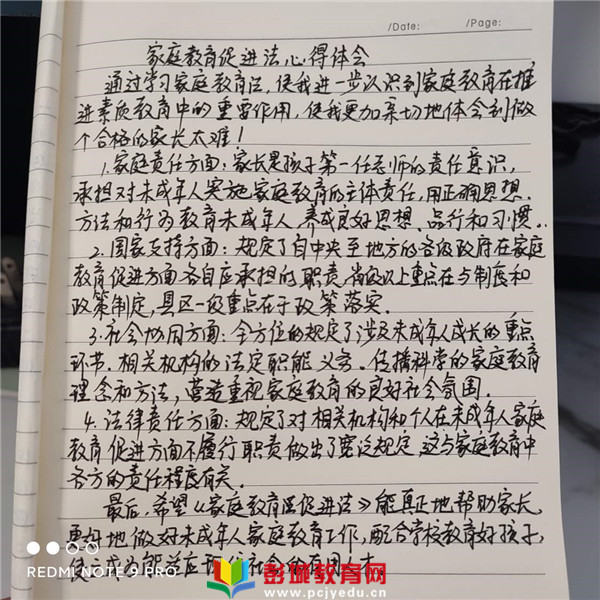 /Date: /Page:
家庭教育促进法心得体会
通过学习家庭教育法,使我进一步认识到家庭教育在推
进素质教育中的重要作用,使我更加亲切地体会到做
个合格的家长太难!
1.家庭责任方面:家长是孩子第一任老师的责任意识,
承担对未成年人实施家庭教育的主体责任,用正确思想.
方法和行为教育未成年人养成良好思想、品行和习惯。
2.国家支持方面:规定了自中央至地方的各级政府在家庭
教育促进方面各自应承担的职责,省级以上重点在与制度和
政策制定,县区一级重点在于政策落实.
3.社会协同方面:全方位的规定了涉及未成年人成长的重点
环节.相关机构的法定职能义务.传播科学的家庭教育
理念和方法,营造重视家庭教育的良好社会氛围.
4.法律责任方面:规定了对相关机构和个人在未成年人家庭
教育促进方面不履行职责做出了宽泛规定,这与家庭教育中
各方的责任程度有关.
最后,希望《家庭教育法促进法》能真正地帮助家长
更好地做好未成年人家庭教育工作,配合学校教育好孩子,
使之成为能适应现代社会的有用人才.
REDMI NOTE 9 PRO
彭城教育网
www.pcjyedu.cn